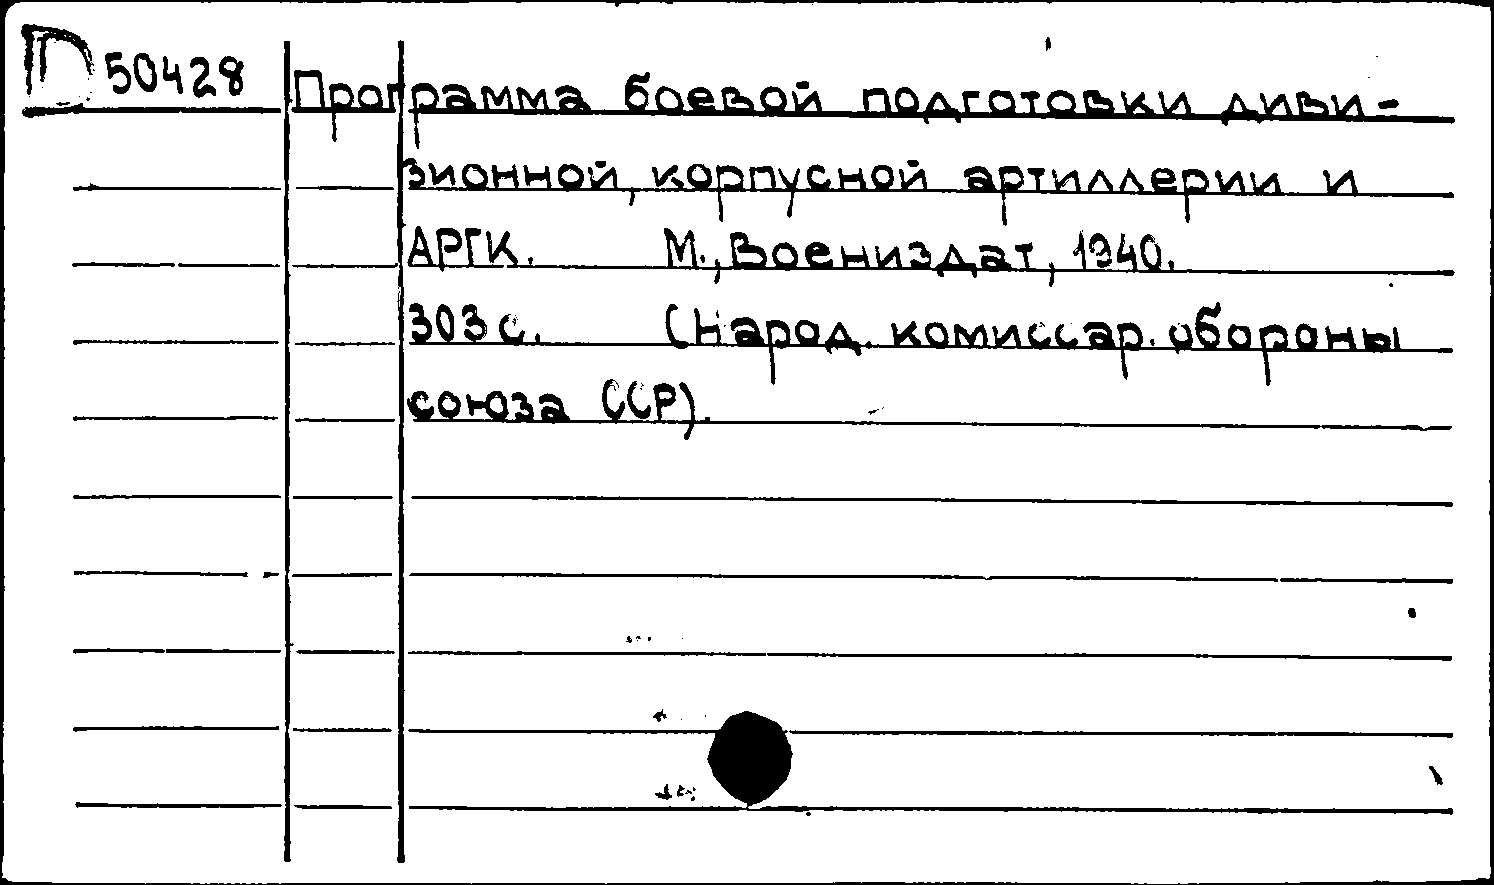 D 50428 Программа боевой подготовки диви-
зионной, корпусной артиллерии и
АРГК. М., Воениздат, 1940.
303 с. (Народ. комиссар. обороны
союза ССР).